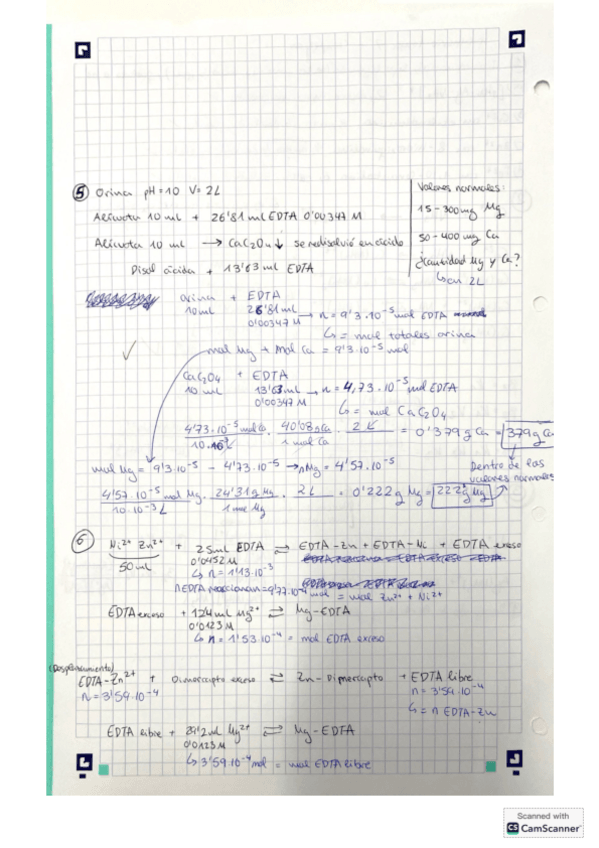 ⑤ Orina pH=10 V=2L
Alícuota 10 ml + 26'81 ml EDTA 0'00347 M
Alícuota 10 ml → CaC₂O₄↓ se redisolvió en ácido
Disol ácida + 13'63 ml EDTA
Valores normales:
15-300mg Mg
50-400 mg Ca
¿Cantidad Mg y Ca?
↳ en 2L
orina + EDTA
10ml 26'81 ml → n = 9'3·10⁻⁵ mol EDTA
0'00347 M ↳ = mol totales orina
mol Mg + mol Ca = 9'3·10⁻⁵ mol
CaC₂O₄ + EDTA
10 ml 13'63 ml → n = 4,73·10⁻⁵ mol EDTA
0'00347 M ↳ = mol CaC₂O₄
4'73·10⁻⁵ mol Ca / 10·10⁻³ · 40'08 g Ca / 1 mol Ca · 2 L = 0'379 g Ca = 379 g Ca
mol Mg = 9'3·10⁻⁵ - 4'73·10⁻⁵ → nMg = 4'57·10⁻⁵
Dentro de los
valores normales
4'57·10⁻⁵ mol Mg / 10·10⁻³ L · 24'31 g Mg / 1 mol Mg · 2L = 0'222 g Mg = 222 g Mg
⑥ Ni²⁺ Zn²⁺ + 25ml EDTA ⇌ EDTA-Zn + EDTA-Ni + EDTA exceso
50 ml 0'0452 M
↳ n = 1'13·10⁻³
nEDTA reaccionan = 9'77·10⁻⁴ mol = mol Zn²⁺ + Ni²⁺
EDTA exceso + 12'4 ml Mg²⁺ ⇌ Mg-EDTA
0'0123 M
↳ n = 1'53·10⁻⁴ = mol EDTA exceso
(Desplazamiento)
EDTA-Zn²⁺ + Dimercapto exceso ⇌ Zn-Dimercapto + EDTA libre
n = 3'59·10⁻⁴ n = 3'59·10⁻⁴
↳ = n EDTA-Zn
EDTA libre + 29'2 ml Mg²⁺ ⇌ Mg-EDTA
0'0123 M
↳ 3'59·10⁻⁴ mol = mol EDTA libre
Scanned with
CS CamScanner